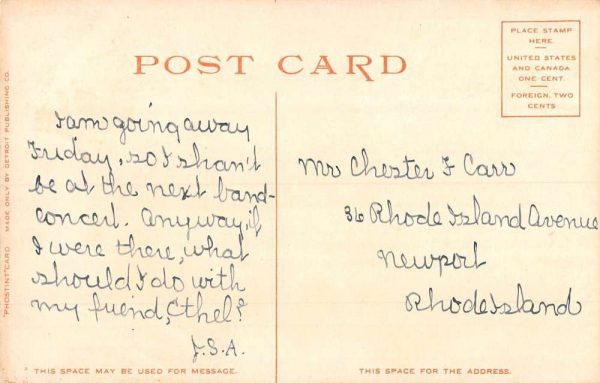 POST CARD
PLACE STAMP
HERE.
UNITED STATES
AND CANADA
ONE CENT.
FOREIGN, TWO
CENTS
"PHOSTINT" CARD MADE ONLY BY DETROIT PUBLISHING CO.
I am going away
Friday, so I shan't
be at the next band-
concert. Anyway, if
I were there, what
should I do with
my friend, Ethel?
J.S.A.
THIS SPACE MAY BE USED FOR MESSAGE.
Mr Chester F Carr
36 Rhode Island Avenue
Newport
Rhode Island
THIS SPACE FOR THE ADDRESS.